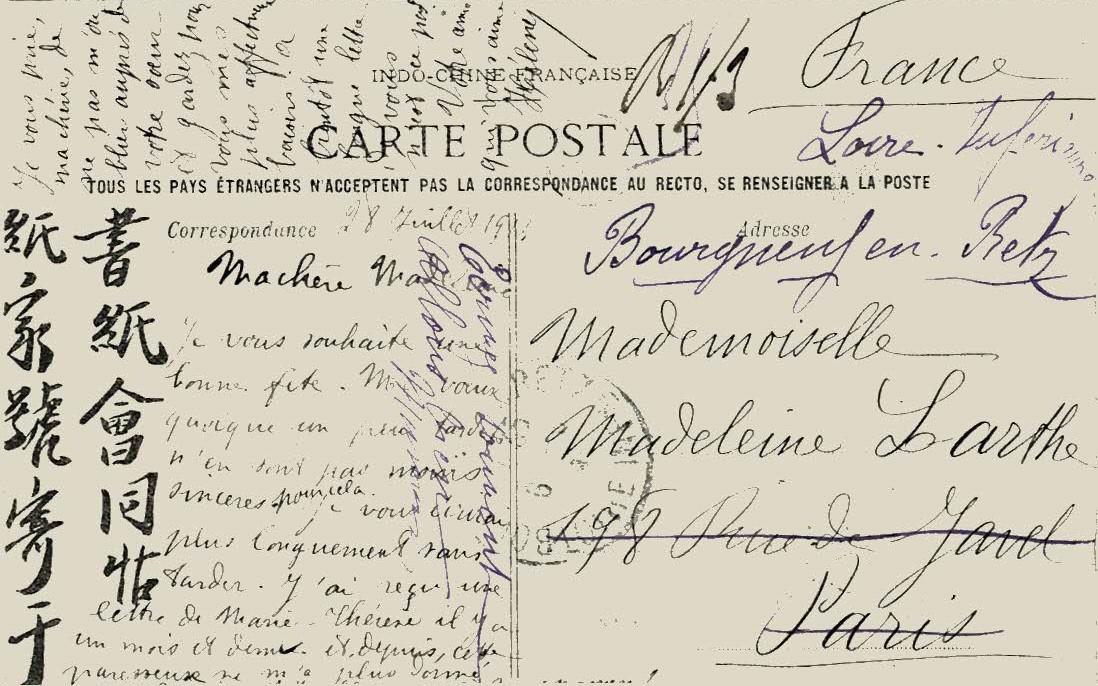 Je vous prie,
ma chérie, de
ne pas m'ou
blier auprès de
votre sœur
et gardez pour
vous mes
plus affectueux
baisers à
bientôt une
longue lettre
à vous
Votre amie
qui vous aime
INDO-CHINE FRANÇAISE
CARTE POSTALE
TOUS LES PAYS ÉTRANGERS N'ACCEPTENT PAS LA CORRESPONDANCE AU RECTO, SE RENSEIGNER A LA POSTE
書紙會同帖
紙家號寄于
Correspondance
28 Juillet
Ma chère
Je vous souhaite une
bonne fête. Mes vœux
quoique un peu tardifs
n'en sont pas moins
sincères pour cela.
Je vous écrirai
plus longuement sans
tarder. J'ai reçu une
lettre de Marie-Thérèse il y a
un mois et demi. et depuis, cette
paresseuse ne m'a plus donné
Adresse
France
Loire-Inférieure
Bourgneuf en Retz
Mademoiselle
Madeleine Larthe
198 Rue de Javel
Paris